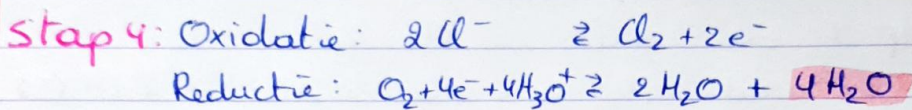 Stap 4: Oxidatie: 2 Cl⁻ ⇄ Cl₂ + 2e⁻
Reductie: O₂ + 4e⁻ + 4H₃O⁺ ⇄ 2 H₂O + 4 H₂O